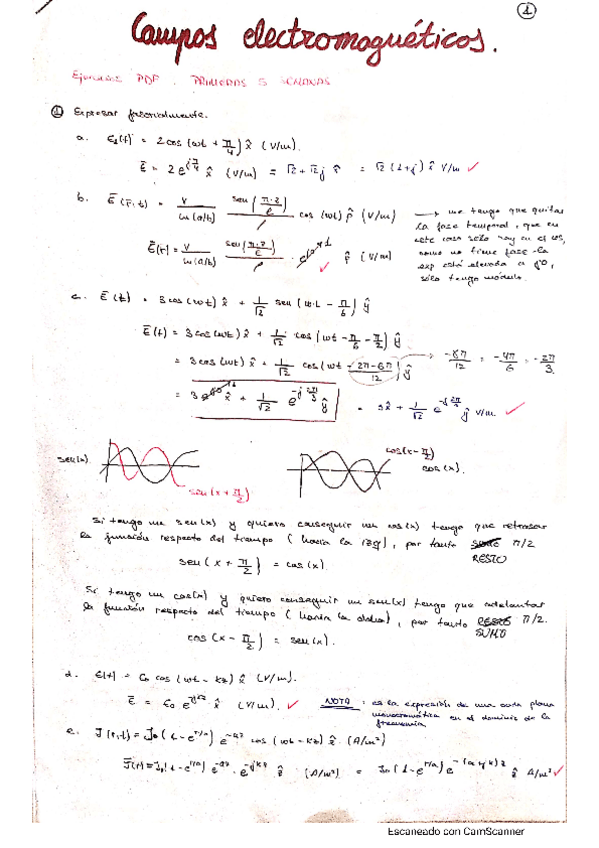 1
Campos electromagnéticos.
Ejercicios PDF. PRIMERAS 5 SEMANAS
① Expresar fasorialmente.
a. E₁(t) = 2 cos (wt + π/4) x̂ (V/m).
Ē = 2 e^{jπ/4} x̂ (V/m) = √2 + √2j x̂ = √2 (1+j) x̂ V/m ✓
b. Ē (r̄, t) = V / ln(a/b) · sen(π·z/ℓ) / ρ cos (wt) ρ̂ (V/m) → me tengo que quitar
la fase temporal, que en
este caso sólo hay en el cos,
como no tiene fase la
exp está elevada a j0,
sólo tengo módulo.
Ē(r) = V / ln(a/b) · sen(π·z/ℓ) / ρ · ρ̂ (V/m) ✓
c. Ē (t) = 3 cos (wt) x̂ + 1/√2 sen (wt - π/6) ŷ
Ē(t) = 3 cos (wt) x̂ + 1/√2 cos (wt - π/6 - π/2) ŷ
= 3 cos (wt) x̂ + 1/√2 cos (wt - 2π-6π/12) ŷ → -8π/12 = -4π/6 = -2π/3.
= 3 x̂ + 1/√2 e^{-j 2π/3} ŷ = 3x̂ + 1/√2 e^{-j 2π/3} ŷ V/m ✓
sen(x)
sen (x + π/2)
cos(x - π/2)
cos (x).
Si tengo un sen(x) y quiero conseguir un cos(x) tengo que retrasar
la función respecto del tiempo (hacia la izq), por tanto SUMO π/2
RESTO
sen (x + π/2) = cos (x)
Si tengo un cos(x) y quiero conseguir un sen(x) tengo que adelantar
la función respecto del tiempo (hacia la dcha), por tanto RESTO π/2.
SUMO
cos (x - π/2) = sen (x).
d. E(t) = E₀ cos (wt - kz) x̂ (V/m).
Ē = E₀ e^{-jkz} x̂ (V/m). ✓ NOTA: es la expresión de una onda plana
monocromática en el dominio de la
frecuencia
e. J̄ (r, t) = J₀ (1 - e^{r/a}) e^{-αz} cos (wt - kz) ẑ (A/m²)
J̄(r) = J₀ (1 - e^{r/a}) e^{-αz} · e^{-jkz} ẑ (A/m²) = J₀ (1 - e^{r/a}) e^{-(α+jk)z} ẑ A/m² ✓
Escaneado con CamScanner